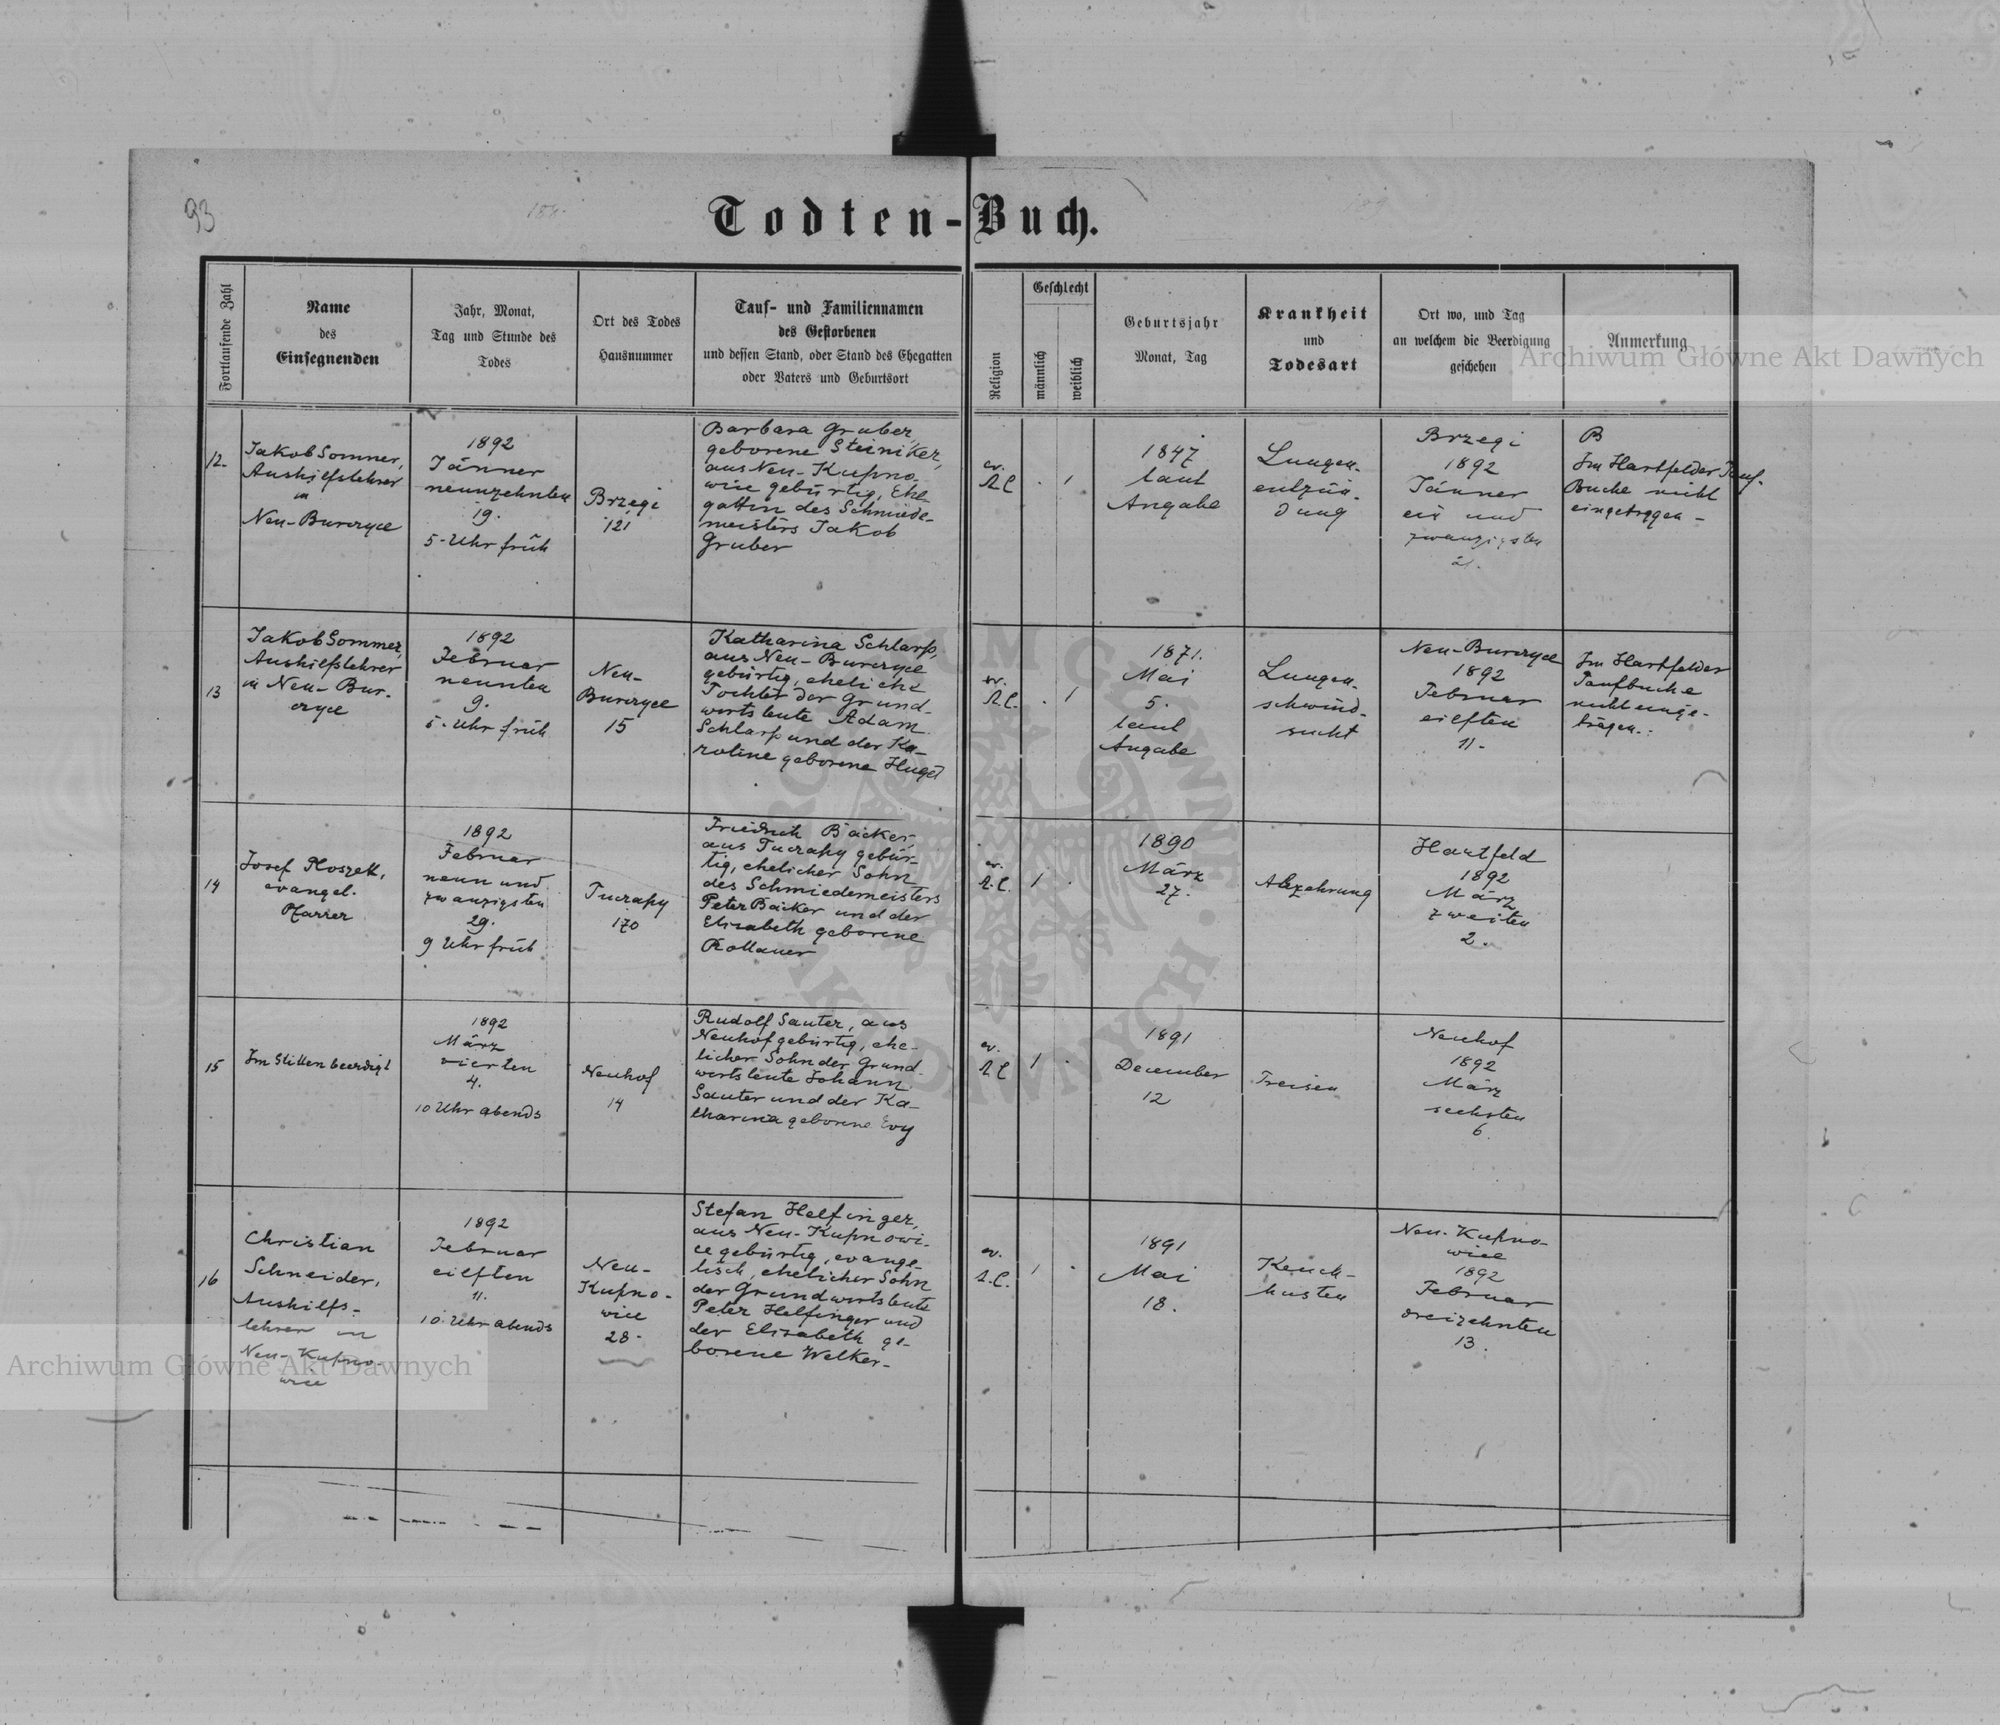 93
Todten-Buch.
Fortlaufende Zahl
Name
des
Einsegnenden
Jahr, Monat,
Tag und Stunde des
Todes
Ort des Todes
Hausnummer
Tauf- und Familiennamen
des Gestorbenen
und dessen Stand, oder Stand des Ehegatten
oder Vaters und Geburtsort
Religion
Geschlecht
männlich
weiblich
Geburtsjahr
Monat, Tag
Krankheit
und
Todesart
Ort wo, und Tag
an welchem die Beerdigung
geschehen
Anmerkung
Archiwum Główne Akt Dawnych
12.
Jakob Sommer,
Aushilfslehrer
in
Neu-Burczyce
1892
Jänner
neunzehnten
19.
5-Uhr früh
Brzegi
121
Barbara Gruber,
geborene Steiniker,
aus Neu-Kupno-
wice gebürtig, Ehe
gattin des Schmiede-
meisters Jakob
Gruber
ev.
A.C.
1
1847
laut
Angabe
Lungen-
entzün-
dung
Brzegi
1892
Jänner
ein und
zwanzigsten
21.
B
Im Hartfelder Tauf-
Buche nicht
eingetragen -
13
Jakob Sommer,
Aushilfslehrer
in Neu-Bur-
czyce
1892
Februar
neunten
9.
5-Uhr früh
Neu-
Burczyce
15
Katharina Schlarp,
aus Neu-Burczyce
gebürtig, eheliche
Tochter der Grund-
wirtsleute Adam
Schlarp und der Ka-
roline geborene Huget
ev.
A.C.
1
1871.
Mai
5.
laut
Angabe
Lungen-
schwind-
sucht
Neu-Burczyce
1892
Februar
eilften
11-
Im Hartfelder
Taufbuche
nicht einge-
tragen.
14
Josef Ploszek,
evangel.
Pfarrer
1892
Februar
neun und
zwanzigsten
29.
9 Uhr früh
Tuczapy
170
Friedrich Bäcker,
aus Tuczapy gebür-
tig, ehelicher Sohn
des Schmiedemeisters
Peter Bäcker und der
Elisabeth geborene
Rollauer
ev.
A.C.
1
1890
März
27.
Abzehrung
Hartfeld
1892
März
zweiten
2.
15
Im Stillen beerdigt
1892
März
vierten
4.
10 Uhr abends
Neuhof
14
Rudolf Sauter, aus
Neuhof gebürtig, ehe-
licher Sohn der Grund-
wirtsleute Johann
Sauter und der Ka-
tharina geborene Evy
ev.
A.C.
1
1891
December
12
Freisen
Neuhof
1892
März
sechsten
6.
16
Christian
Schneider,
Aushilfs-
lehrer in
Neu-Kupno-
wice
1892
Februar
eilften
11.
10 Uhr abends
Neu-
Kupno-
wice
28-
Stefan Helfinger,
aus Neu-Kupnowi-
ce gebürtig, evange-
lisch, ehelicher Sohn
der Grundwirtsleute
Peter Helfinger und
der Elisabeth ge-
borene Welker-
ev.
A.C.
1
1891
Mai
18.
Keuch-
husten
Neu-Kupno-
wice
1892
Februar
dreizehnten
13.
Archiwum Główne Akt Dawnych